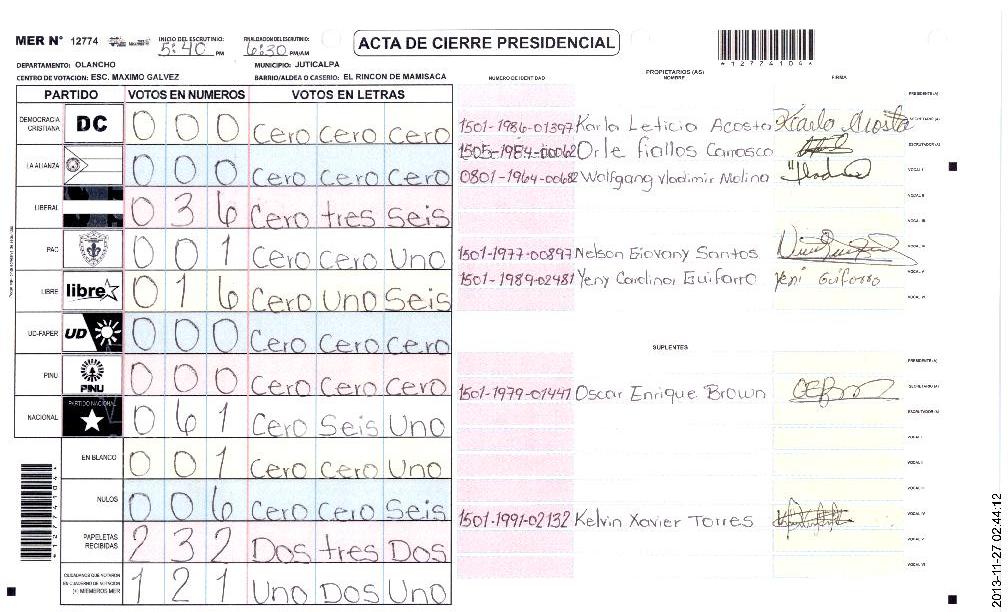 MER N° 12774 INICIO DEL ESCRUTINIO: 5:40 PM FINALIZACION DEL ESCRUTINIO: 6:30 PM/AM
ACTA DE CIERRE PRESIDENCIAL
*12774104*
DEPARTAMENTO: OLANCHO MUNICIPIO: JUTICALPA
CENTRO DE VOTACION: ESC. MAXIMO GALVEZ BARRIO/ALDEA O CASERIO: EL RINCON DE MAMISACA
PARTIDO VOTOS EN NUMEROS VOTOS EN LETRAS
DEMOCRACIA CRISTIANA DC 0 0 0 Cero Cero Cero
LA ALIANZA 0 0 0 Cero Cero Cero
LIBERAL 0 3 6 Cero tres Seis
PAC 0 0 1 Cero Cero Uno
LIBRE libre 0 1 6 Cero Uno Seis
UD-FAPER UD 0 0 0 Cero Cero Cero
PINU PINU 0 0 0 Cero Cero Cero
NACIONAL PARTIDO NACIONAL 0 6 1 Cero Seis Uno
EN BLANCO 0 0 1 Cero Cero Uno
NULOS 0 0 6 Cero Cero Seis
PAPELETAS RECIBIDAS 2 3 2 Dos tres Dos
CIUDADANOS QUE VOTARON EN CUADERNO DE VOTACION (+) MIEMBROS MER 1 2 1 Uno Dos Uno
*12774104*
PROPIETARIOS (AS)
NUMERO DE IDENTIDAD NOMBRE FIRMA
PRESIDENTE(A)
1501-1986-01397 Karla Leticia Acosta Karla Acosta SECRETARIO (A)
1505-1984-00062 Orle fiallos Carrasco ESCRUTADOR (A)
0801-1964-00682 Wolfgang Vladimir Molina VOCAL I
VOCAL II
VOCAL III
1501-1977-00897 Nelson Giovany Santos VOCAL IV
1501-1989-02481 Yeny Carolina Guifarro Yeni Guifarro VOCAL V
VOCAL VI
SUPLENTES
PRESIDENTE (A)
1501-1979-01447 Oscar Enrique Brown SECRETARIO (A)
ESCRUTADOR (A)
VOCAL I
VOCAL II
VOCAL III
1501-1991-02132 Kelvin Xavier Torres VOCAL IV
VOCAL V
VOCAL VI
2013-11-27 02:44:12